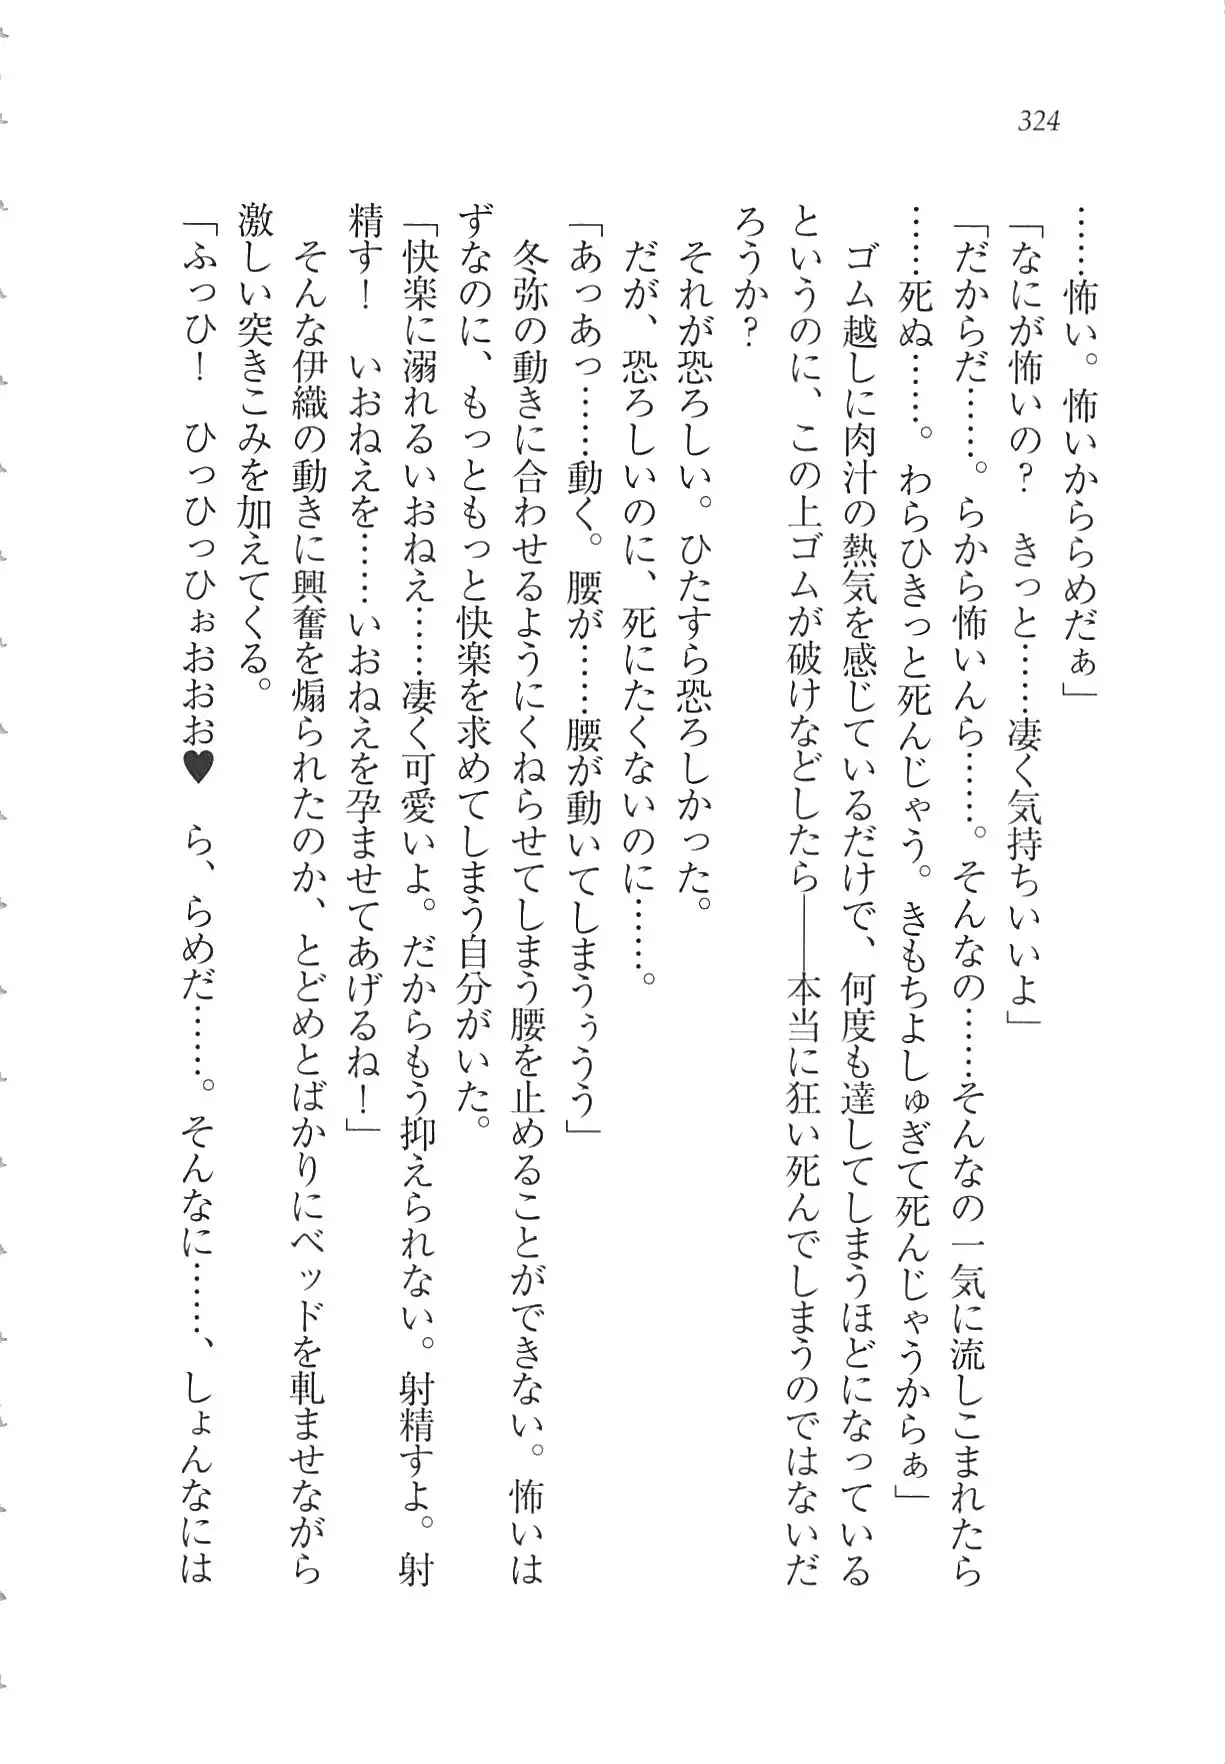 324
……怖い。怖いかららめだぁ」
「なにが怖いの？　きっと……凄く気持ちいいよ」
「だからだ……。らから怖いんら……。そんなの……そんなの一気に流しこまれたら
……死ぬ……。わらひきっと死んじゃう。きもちよしゅぎて死んじゃうからぁ」
　ゴム越しに肉汁の熱気を感じているだけで、何度も達してしまうほどになっている
というのに、この上ゴムが破けなどしたら――本当に狂い死んでしまうのではないだ
ろうか？
　それが恐ろしい。ひたすら恐ろしかった。
　だが、恐ろしいのに、死にたくないのに……。
「あっあっ……動く。腰が……腰が動いてしまうぅうう」
　冬弥の動きに合わせるようにくねらせてしまう腰を止めることができない。怖いは
ずなのに、もっともっと快楽を求めてしまう自分がいた。
「快楽に溺れるいおねえ……凄く可愛いよ。だからもう抑えられない。射精すよ。射
精す！　いおねえを……いおねえを孕ませてあげるね！」
　そんな伊織の動きに興奮を煽られたのか、とどめとばかりにベッドを軋ませながら
激しい突きこみを加えてくる。
「ふっひ！　ひっひっひぉおおお♥　ら、らめだ……。そんなに……、しょんなには